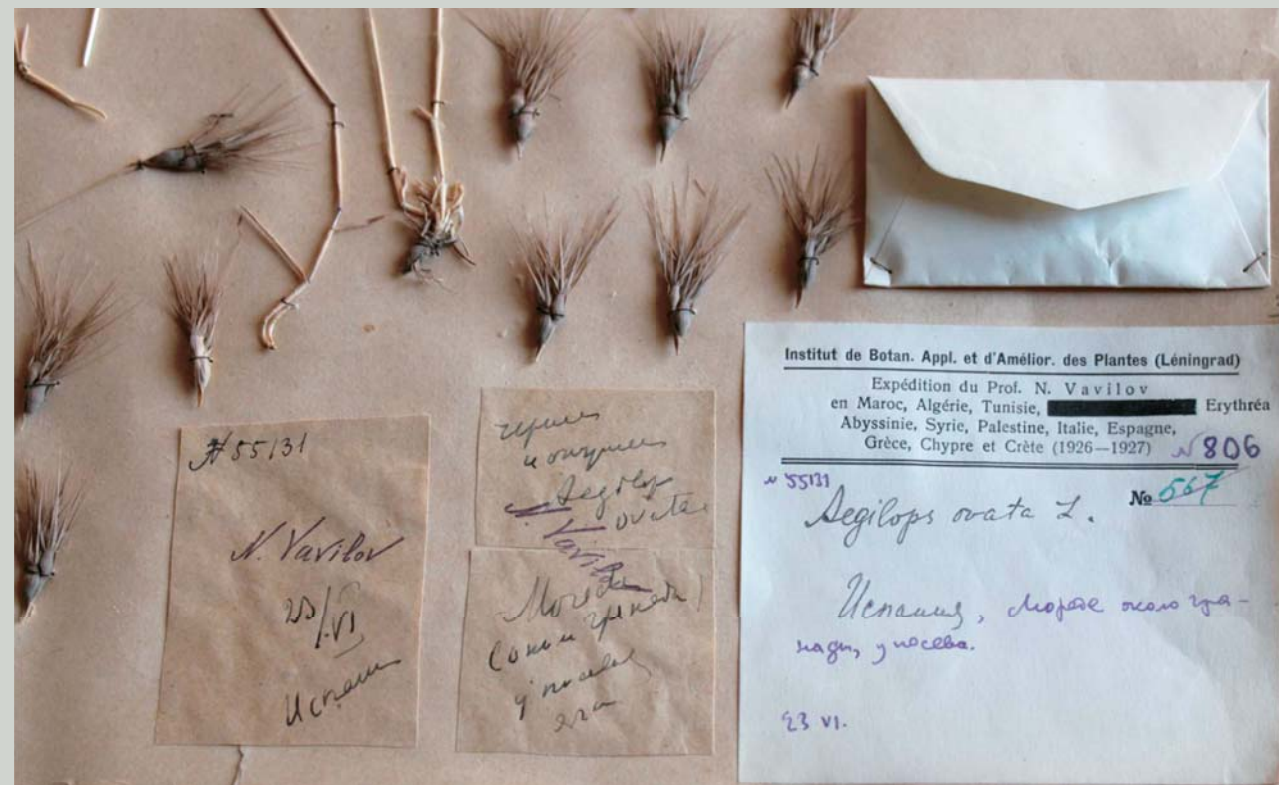 №55131
N. Vavilov
23/VI
Испания
Aegilops
ovata
N. Vavilov
Institut de Botan. Appl. et d'Amélior. des Plantes (Léningrad)
Expédition du Prof. N. Vavilov
en Maroc, Algérie, Tunisie, Erythréa
Abyssinie, Syrie, Palestine, Italie, Espagne,
Grèce, Chypre et Crète (1926—1927) N 806
N 55131
No 567
Aegilops ovata L.
Испания, около Гра-
нады, у посева.
23 VI.